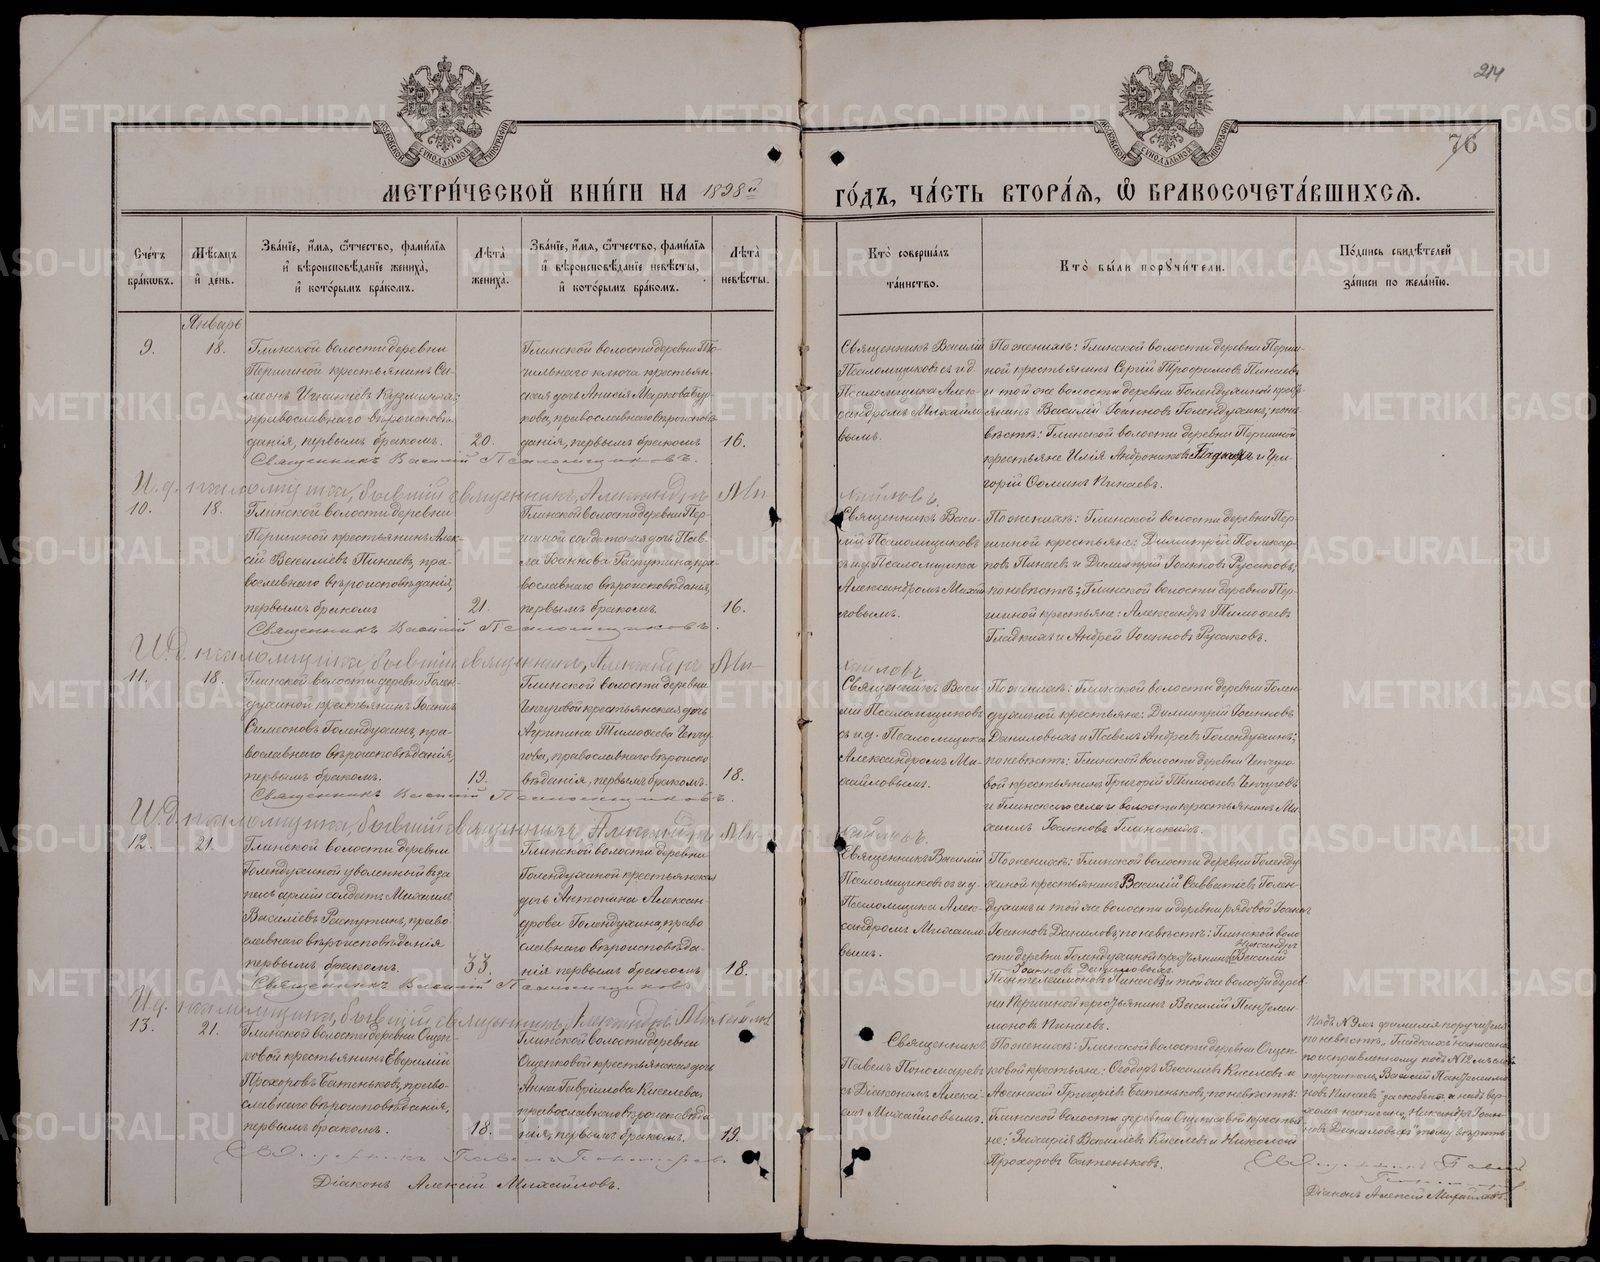 214
76
МЕТРИ́ЧЕСКОЙ КНИ́ГИ НА 1898й
ГО́ДЪ, ЧА́СТЬ ВТОРА́Ѧ, Ѿ БРАКОСОЧЕТА́ВШИХСѦ.
Сче́тъ бра́кѡвъ.
Мѣ́сѧцъ и̑ де́нь.
Зва́нїе, и́мѧ, ѻ́тчество, фами́лїѧ
и̑ вѣроисповѣ́данїе жениха̀,
и̑ кото́рымъ бра́комъ.
Лѣта̀ жениха̀.
Зва́нїе, и́мѧ, ѻ́тчество, фами́лїѧ
и̑ вѣроисповѣ́данїе невѣ́сты,
и̑ кото́рымъ бра́комъ.
Лѣта̀ невѣ́сты.
Кто̀ соверша́лъ
та́инство.
Кто̀ бы́ли порꙋчи́тели.
По́дпись свидѣ́телей
за́писи по жела́нїю.
Январь
9.
18.
Глинской волости деревни
Першиной крестьянинъ Си-
меонъ Игнатіевъ
православнаго вѣроиспові-
данія, первымъ бракомъ.
20.
Глинской волости деревни
ключа крестьян-
ская дочь Анисія Маркова
православнаго вѣроиспов
данія, первымъ бракомъ
16.
Священникъ Василій
Псаломщиковъ съ и.д.
Псаломщика Алек-
сандромъ Михайло-
вымъ.
По женихѣ: Глинской волости деревни Перши-
ной крестьянинъ Сергій Трофимовъ Пинаевъ
и той же волости деревни Голендухиной крес
янинъ Василій Іоанновъ Голендухинъ; по не
вѣстѣ: Глинской волости деревни Першиной
крестьяне Илія Андрониковъ Гладкихъ и Гри-
горій Пинаевъ.
Священникъ Василій Псаломщиковъ.
И.д. псаломщика, бывшій священникъ, Александръ Ми-
хайловъ.
10.
18.
Глинской волости деревни
Першиной крестьянинъ Алек-
сій Василіевъ Пинаевъ, пра-
вославнаго вѣроисповѣданія,
первымъ бракомъ
21.
Глинской волости деревни Пер-
шиной солдатская дочь Пав-
ла Іоаннова Распутина, пра-
вославнаго вѣроисповѣданія,
первымъ бракомъ.
16.
Священникъ Васи-
лій Псаломщиковъ
съ и.д. Псаломщика
Александромъ Михай
ловымъ.
По женихѣ: Глинской волости деревни Пер-
шиной крестьяне: Димитрій Поликар-
повъ Пинаевъ и Димитрій Іоанновъ Русаковъ;
по невѣстѣ: Глинской волости деревни Пер-
шиной крестьяне: Александръ Тимофеевъ
Гладкихъ и Андрей Іоанновъ Русаковъ.
Священникъ Василій Псаломщиковъ.
И.д. псаломщика, бывшій священникъ, Александръ Ми-
хайловъ
11.
18.
Глинской волости деревни Голен-
духиной крестьянинъ Іоаннъ
Симеоновъ Голендухинъ, пра-
вославнаго вѣроисповѣданія,
первымъ бракомъ.
19.
Глинской волости деревни
Чепчуговой крестьянская дочь
Агрипина Тимофеева Чепчу-
гова, православнаго вѣроиспо
вѣданія, первымъ бракомъ.
18.
Священникъ Васи-
лій Псаломщиковъ
съ и.д. Псаломщика
Александромъ Ми-
хайловымъ.
По женихѣ: Глинской волости деревни Голен
духиной крестьяне: Димитрій Іоанновъ
Даниловыхъ и Павелъ Андреевъ Голендухинъ;
по невѣстѣ: Глинской волости деревни Чепчуго-
вой крестьянинъ Григорій Тимофеевъ Чепчуговъ
и Глинскаго села и волости крестьянинъ Ми-
хаилъ Іоанновъ Глинскихъ.
Священникъ Василій Псаломщиковъ.
И.д. псаломщика, бывшій священникъ, Александръ Ми-
хайловъ.
12.
21.
Глинской волости деревни
Голендухиной уволенный въ за
пасъ арміи солдатъ Михаилъ
Василіевъ Распутинъ, право
славнаго вѣроисповѣданія
первымъ бракомъ.
33.
Глинской волости деревни
Голендухиной крестьянская
дочь Антонина Алексан
дрова Голендухина, право
славнаго вѣроисповѣда-
нія первымъ бракомъ
18.
Священникъ Василій
Псаломщиковъ съ и.д.
Псаломщика Алек-
сандромъ Михайло
вымъ.
По женихѣ: Глинской волости деревни Голенду
хиной крестьянинъ Василій Савватіевъ Голен-
духинъ и той же волости и деревни рядовой Іоаннъ
Іоанновъ Даниловъ; по невѣстѣ: Глинской воло
сти деревни Голендухиной крестьянинъ Василій
Никандръ
Іоанновъ Даниловыхъ
Пантелеимоновъ Пинаевъ и той же волости дерев
ни Першиной крестьянинъ Василій Пантелеи
моновъ Пинаевъ.
Священникъ Василій Псаломщиковъ
И.д. псаломщика, бывшій священникъ, Александръ Михайловъ
13.
21.
Глинской волости деревни Ощеп-
ковой крестьянинъ
Прохоровъ Батеньковъ, право-
славнаго вѣроисповѣданія,
первымъ бракомъ.
18.
Глинской волости деревни
Ощепковой крестьянская дочь
Анна Гавріилова Киселева
православнаго вѣроисповѣда
нія, первымъ бракомъ.
19.
Священникъ
Павелъ Пономаревъ
съ Діакономъ Алексі-
емъ Михайловымъ.
По женихѣ: Глинской волости деревни Ощеп
ковой крестьяне: Ѳеодоръ Василіевъ Киселевъ и
Аѳанасій Григоріевъ Батеньковъ; по невѣстѣ:
Глинской волости деревни Ощепковой крестья
не: Захарія Василіевъ Киселевъ и Николай
Прохоровъ Батеньковъ.
Подъ N 9мъ фамилія поручителя
по невѣстѣ, Гладкихъ написана
по исправленному подъ N 12мъ слова
поручитель Василій Пантелеимо
новъ Пинаевъ заскоблены и надъ вер
хомъ написано Никандръ Іоан-
новъ Даниловыхъ тому вѣрить
Священникъ Павелъ Пономаревъ
Діаконъ Алексій Михайловъ.
Священникъ Павелъ
Діаконъ Алексій Михайловъ.